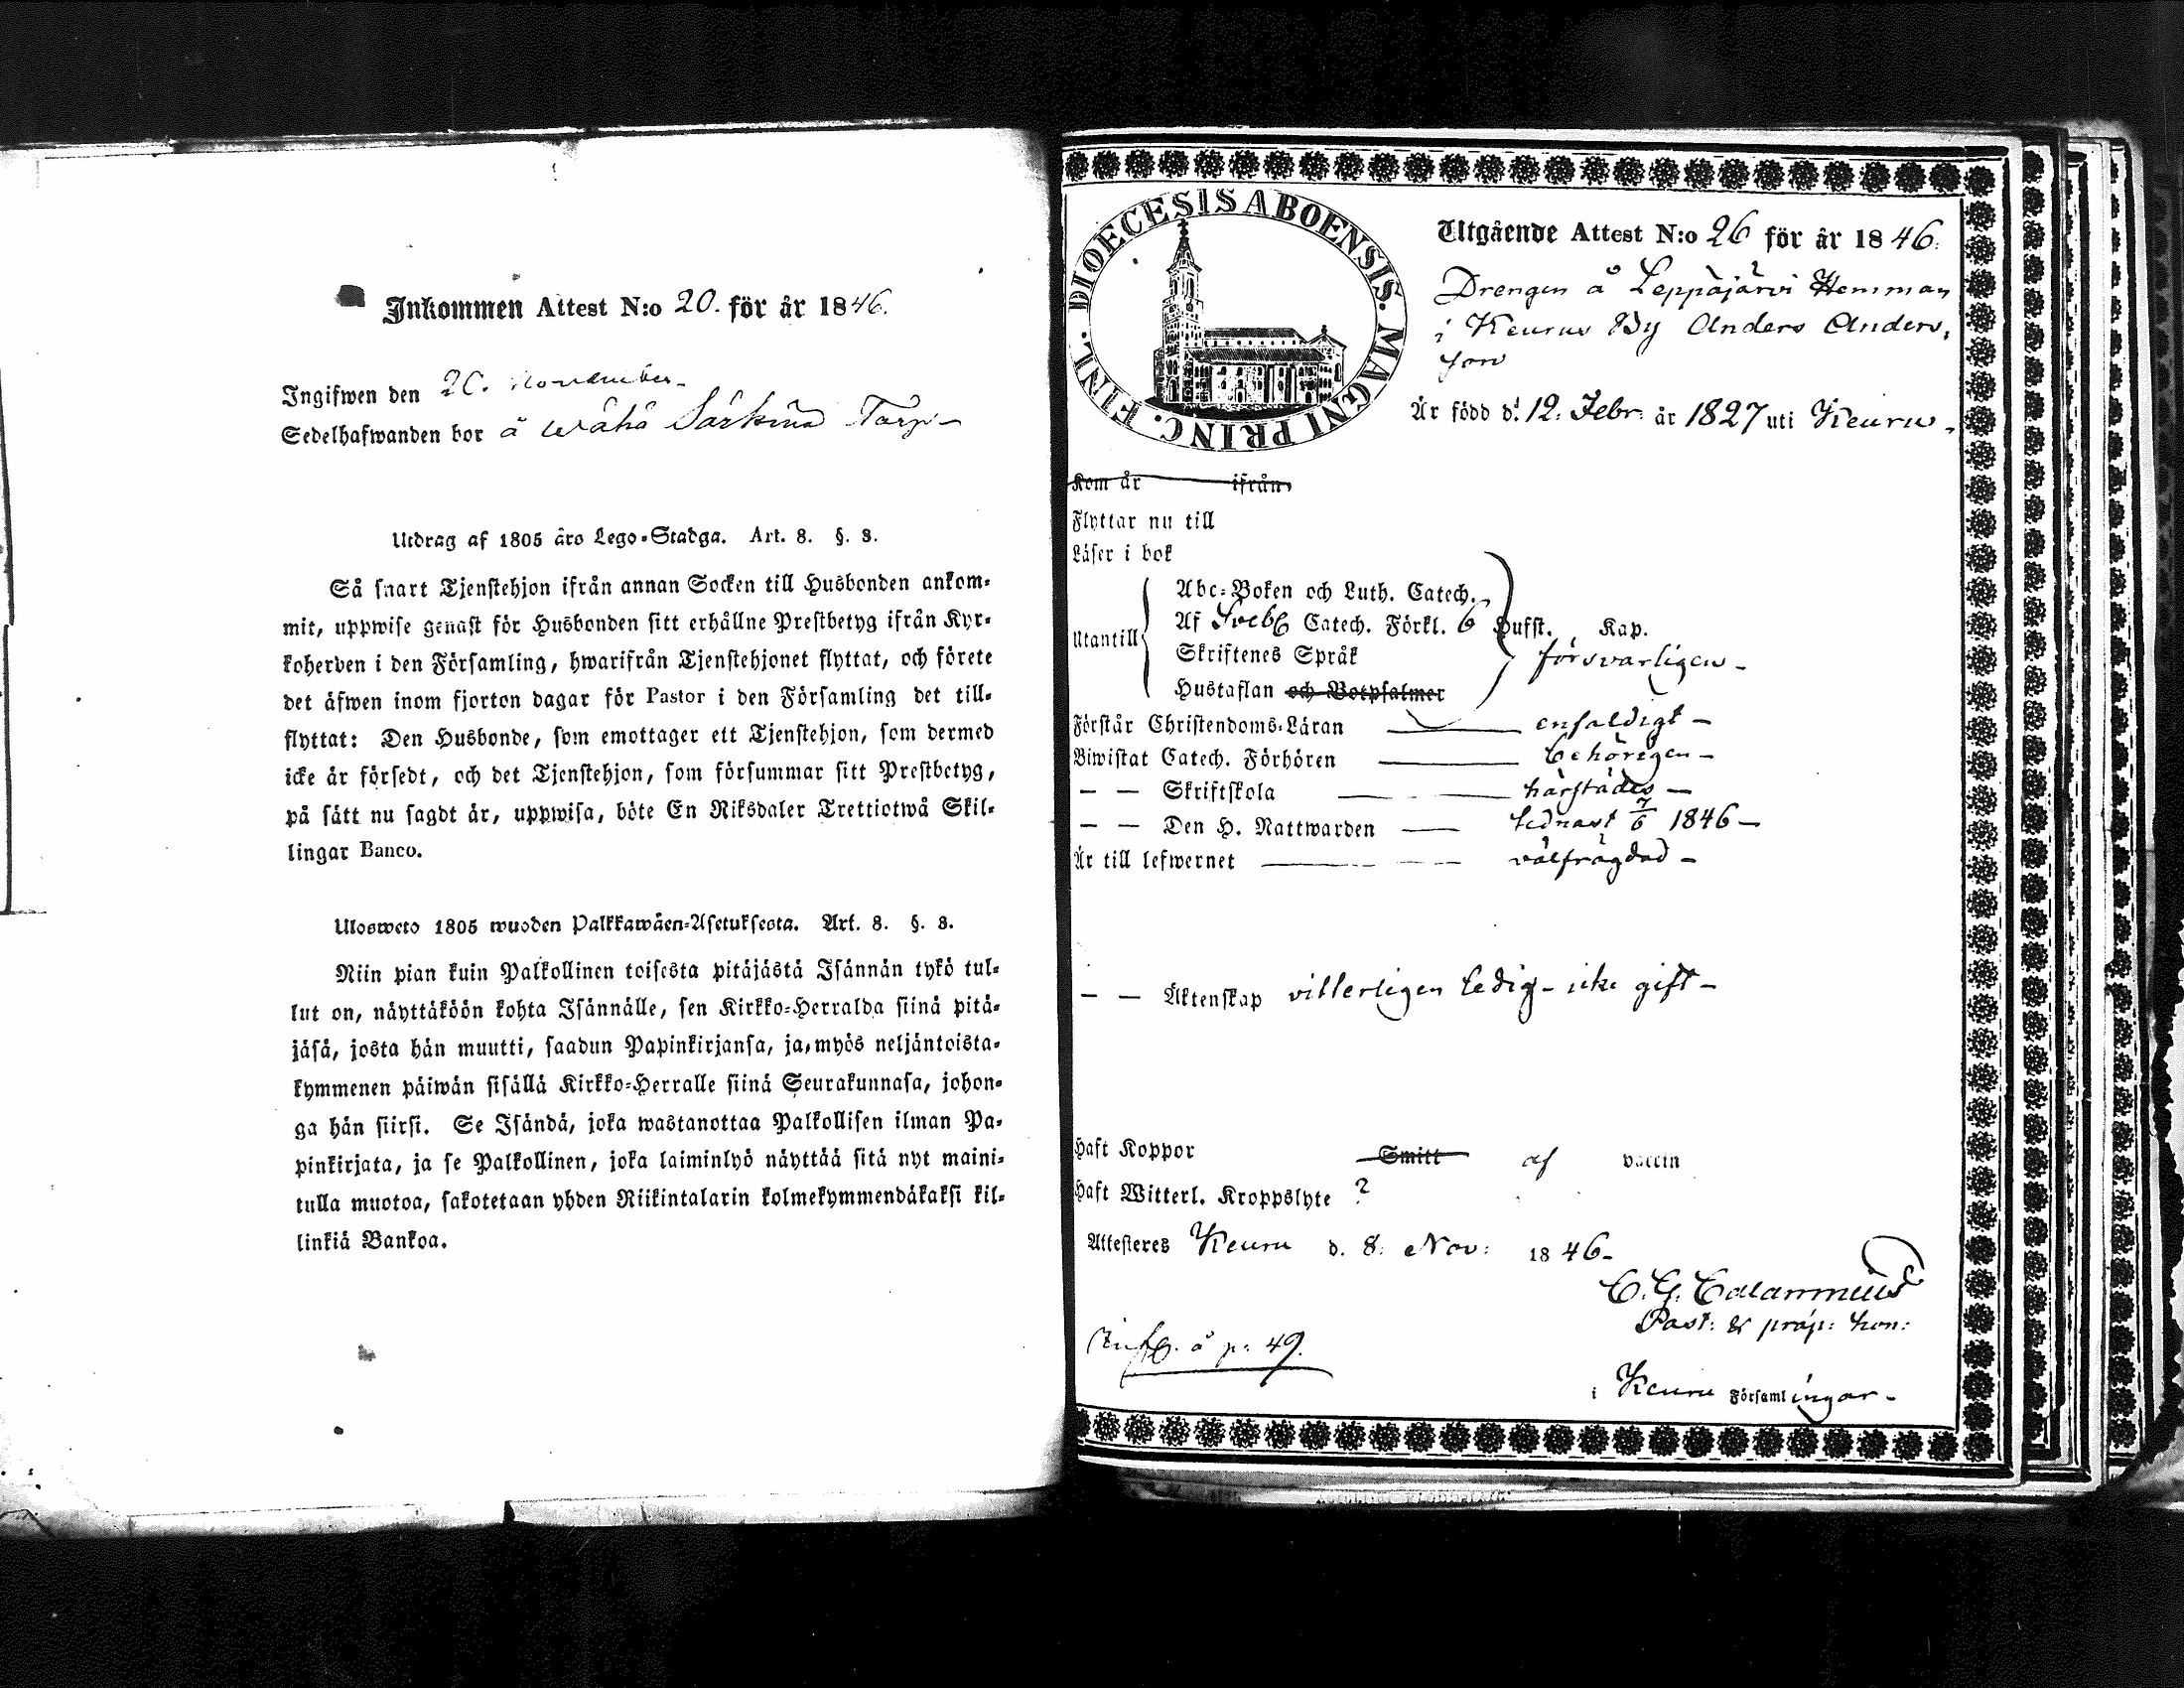 Inkommen Attest N:o 20. för år 1846.
Ingifwen den 20. November
Sedelhafwanden bor å wähä Särkinä Torp
Utdrag af 1805 års Lego-Stadga. Art. 8. §. 3.
Så snart Tjenstehjon ifrån annan Socken till Husbonden ankom-
mit, uppwise genast för Husbonden sitt erhållne Prestbetyg ifrån Kyr-
koherden i den Församling, hwarifrån Tjenstehjonet flyttat, och förete
det äfwen inom fjorton dagar för Pastor i den Församling det till-
flyttat: Den Husbonde, som emottager ett Tjenstehjon, som dermed
icke är försedt, och det Tjenstehjon, som försummar sitt Prestbetyg,
på sätt nu sagdt är, uppwisa, böte En Riksdaler Trettiotwå Skil-
lingar Banco.
Ulosweto 1805 wuoden Palkkawäen-Asetuksesta. Art. 8. §. 3.
Niin pian kuin Palkollinen toisesta pitäjästä Isännän tykö tul-
lut on, näyttäköön kohta Isännälle, sen Kirkko-Herralda siinä pitä-
jäsä, josta hän muutti, saadun Papinkirjansa, ja myös neljäntoista-
kymmenen päiwän sisällä Kirkko-Herralle siinä Seurakunnasa, johon-
ga hän siirsi. Se Isändä, joka wastanottaa Palkollisen ilman Pa-
pinkirjata, ja se Palkollinen, joka laiminlyö näyttää sitä nyt maini-
tulla muotoa, sakotetaan yhden Riikintalarin kolmekymmendäkaksi kil-
linkiä Bankoa.
DIOECESIS ABOENSIS. MAGNI PRINC. FINL.
Utgående Attest N:o 26 för år 1846.
Drengen å Leppäjärvi Hemman
i Keurus By Anders Anders,
son
Är född d. 12. Febr. år 1827 uti Keuru.
Kom år ifrån
Flyttar nu till
Läser i bok
Abc-Boken och Luth. Catech.
Utantill Af Sveb. Catech. Förkl. 6 Hufst. Kap.
Skriftenes Språk försvarligen
Hustaflan och Botpsalmer
Förstår Christendoms-Läran enfaldigt
Biwistat Catech. Förhören behörigen
— — Skriftskola härstädes
— — Den H. Nattwarden sednast 7/6 1846
Är till lefwernet välfrägdad
— — Äktenskap vitterligen ledig - icke gift
Haft Koppor Smitt af vaccin
Haft Witterl. Kroppslyte ?
Attesteres Keuru d. 8. Nov: 1846
C. G. Calamnius
Past: & präp: hon:
Infl. å p: 49.
i Keuru Församlingar